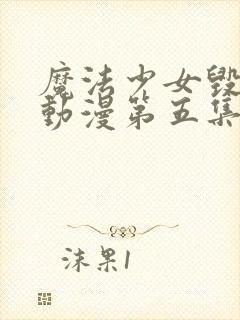 魔法少女毀
動漫第五集
沫果1